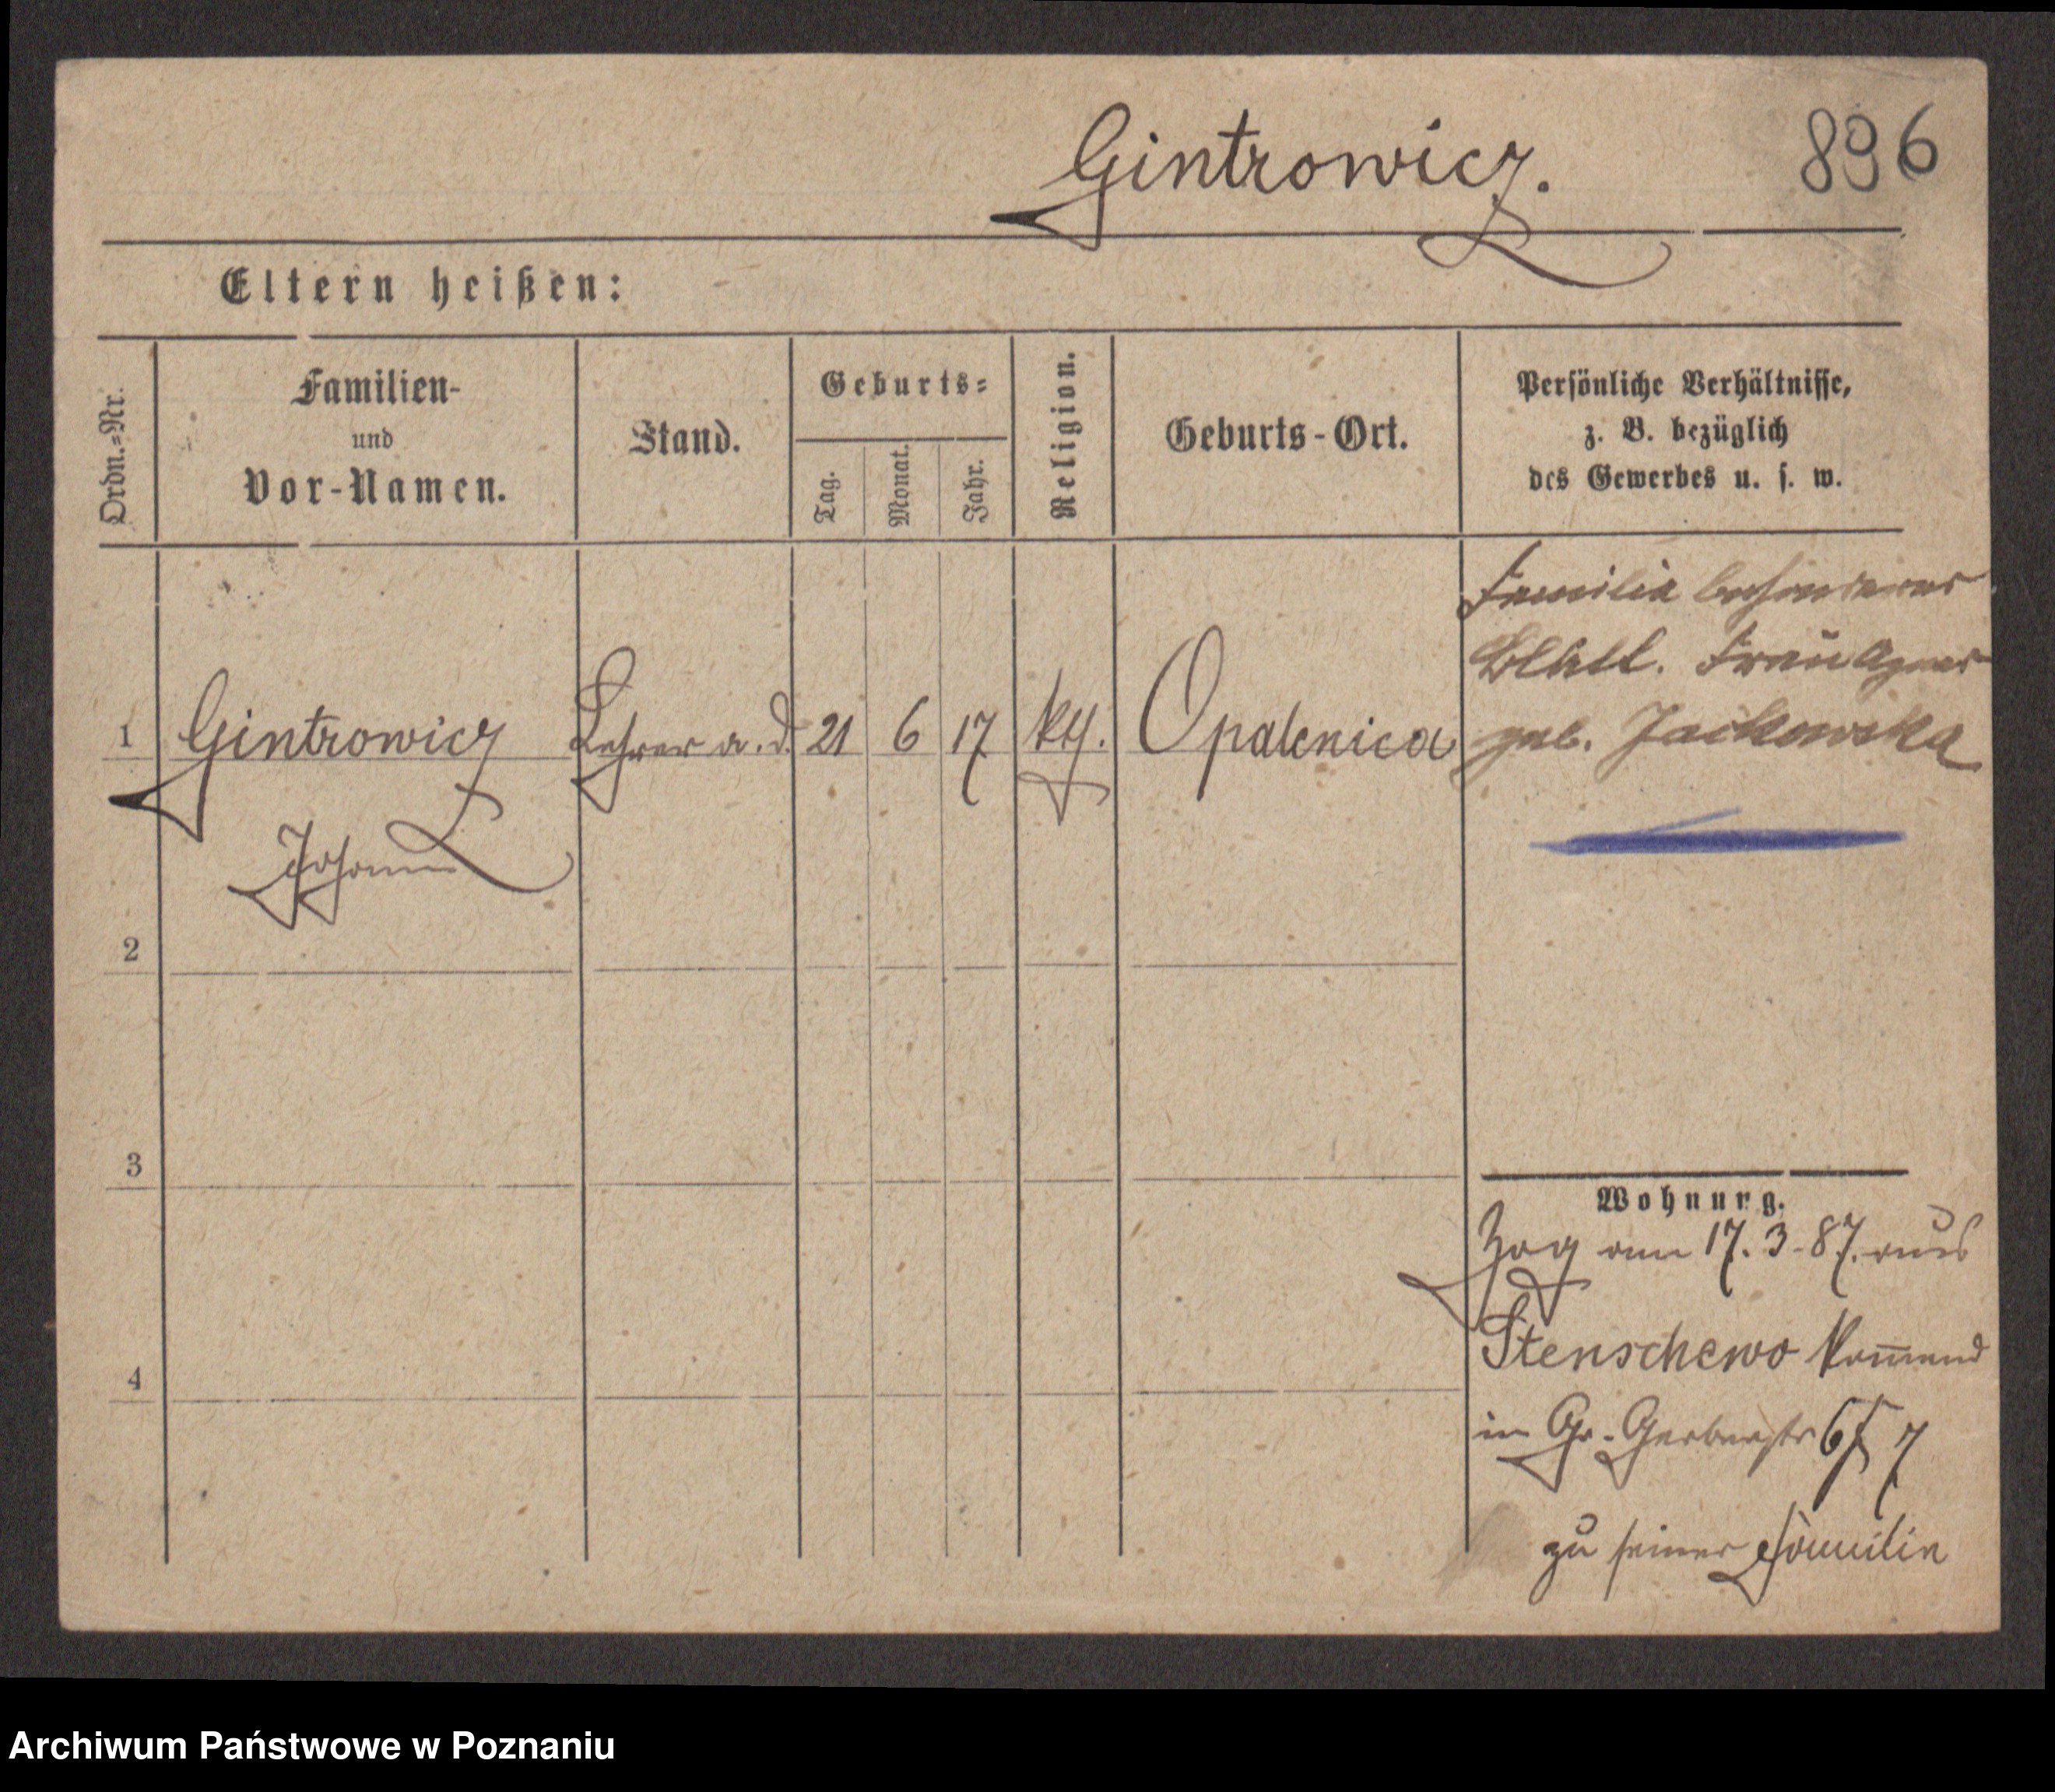 Gintrowicz. 896
Eltern heißen:
Ordn.=Nr.
Familien-
und
Vor-Namen.
Stand.
Geburts=
Tag.
Monat.
Jahr.
Religion.
Geburts-Ort.
Persönliche Verhältnisse,
z. B. bezüglich
des Gewerbes u. s. w.
Familie besonderes
Blatt. Frau Agnes
geb. Jackowska
1 Gintrowicz Lehrer a. D. 21 6 17 kth. Opalenica
Johann
2
3
4
Wohnung.
Zog am 17. 3. 87. aus
Stenschewo kom̄end
in Gr. Gerberstr 6 7
zu seiner Familie
Archiwum Państwowe w Poznaniu